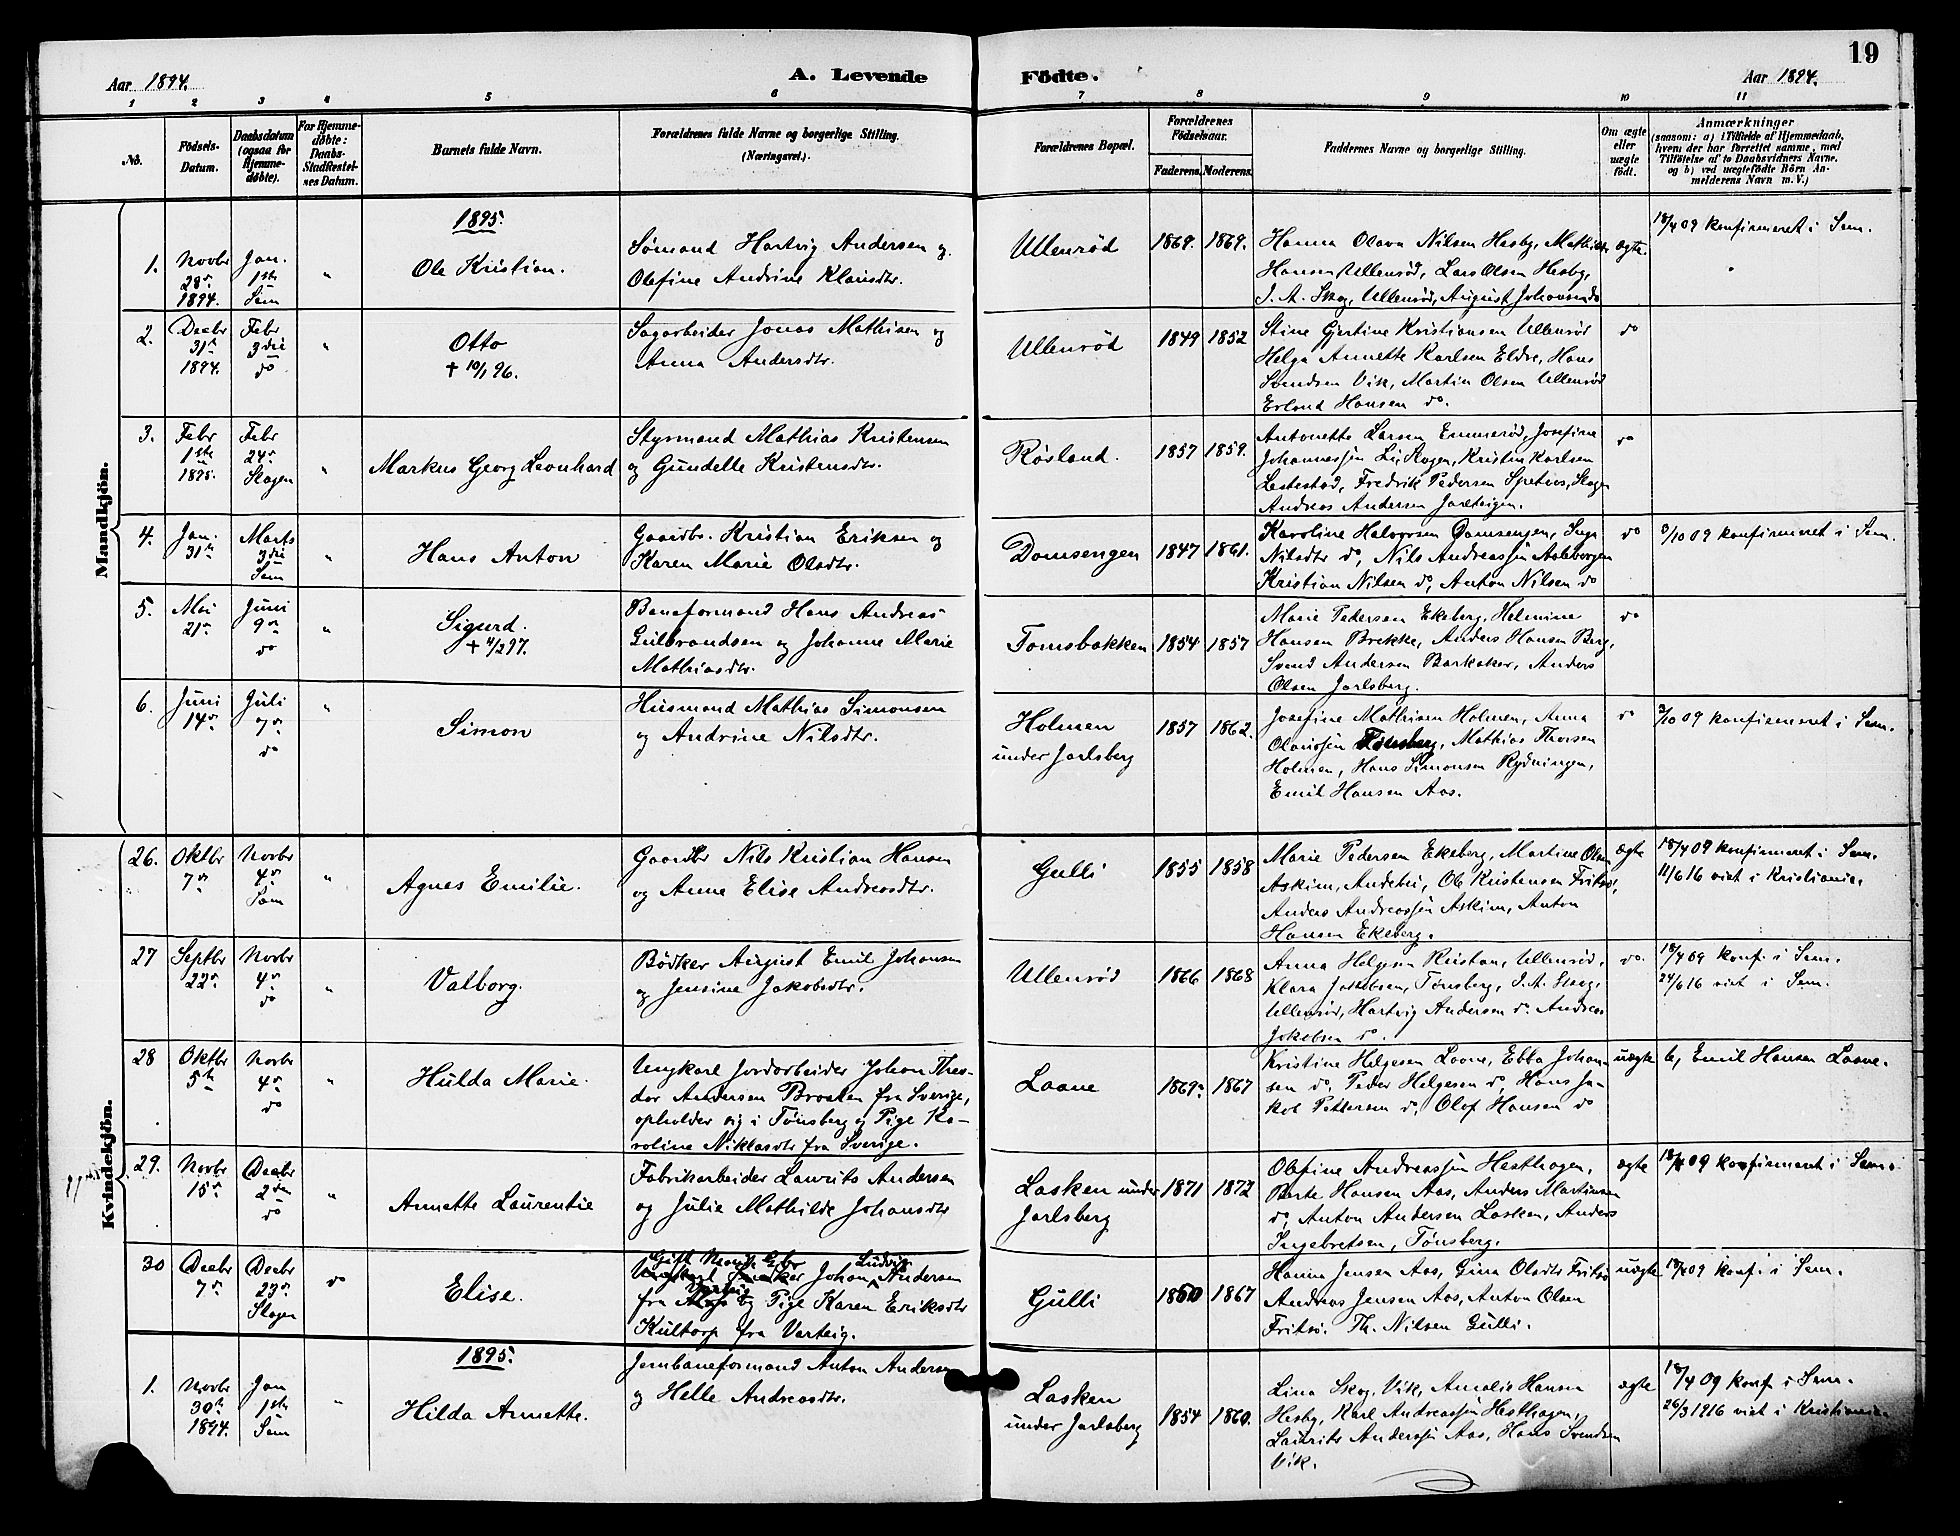 19
Aar 1894.
A. Levende
Födte.
Aar 1894.
1 2 3 4 5 6 7 8 9 10 11
No.
Födsels-
Datum.
Daabsdatum
(ogsaa for
Hjemme-
döbte).
For Hjemme-
döbte:
Daabs-
Stadfæstel-
ses Datum.
Barnets fulde Navn.
Forældrenes fulde Navne og borgerlige Stilling.
(Næringsvei.)
Forældrenes Bopæl.
Forældrenes
Födselsaar.
Faderens. Moderens.
Faddernes Navne og borgerlige Stilling.
Om ægte
eller
uægte
födt.
Anmærkninger
(saasom: a) i Tilfælde af Hjemmedaab,
hvem der har forrettet samme, med
Tilföielse af to Daabsvidners Navne,
og b) ved uægtefödte Börn An-
melderens Navn m. V.)
Mandkjön.
1895.
1.
Novbr
28de
1894.
Jan.
1ste
Sem
"
Ole Kristian.
Sømand Hartvig Andersen og
Olefine Andrine Klausdtr.
Ullenrød
1869. 1869.
Hanna Olava Nilsen Hesby, Mathilde
Hansen Ullensød, Lars Olsen Hesby,
J. A. Skog, Ullenrød, August Johansen do
ægte.
18/4 09 konfirmeret i Sem.
2.
Decbr
31te
1894.
Febr
3die
do
"
Otto
+ 10/1 96.
Sagarbeider Jonas Mathisen og
Anna Andersdtr.
Ullenrød
1849 1852
Stine Gjertine Kristiansen Ullenrød
Helga Annette Karlsen Eldre, Hans
Svendsen Vik, Martin Olsen Ullenrød
Erland Hansen do.
do
3.
Febr
1ste
1895.
Febr
24de
Slagen
"
Markus Georg Leonhard
Styrmand Mathias Kristensen
og Gundelle Kristensdtr.
Røsland.
1857 1859.
Antonette Larsen Emmerød, Josefine
Johannessøn Li, Slagen, Kristin Karlsen
Lestestad, Fredrik Pedersen Spetsøs, Slagen
Andreas Andersen Jarlteigen.
do
4.
Jan.
31te
Marts
3die
Sem
"
Hans Anton
Gaardbr. Kristian Eriksen og
Karen Marie Olsdtr.
Domsengen
1847 1861.
Karoline Halvorsen Domsengen, Inga
Nilsdtr do, Nils Andreassøn Aaleborgen
Kristian Nilsen do, Anton Nilsen do
do
3/10 09 konfirmeret i Sem.
5.
Mai
21de
Juni
9de
do
"
Sigurd.
+ 4/2 97.
Baneformand Hans Andreas
Gulbrandsen og Johanne Marie
Mathiasdtr.
Tomsbakken
1854 1857
Marie Pedersen Ekeberg, Helmine
Hansen Brekke, Anders Hansen Berg,
Svend Andersen Barkaker, Anders
Olsen Jarlsberg.
do
6.
Juni
14de
Juli
7de
do
"
Simon
Husmand Mathias Simonsen
og Andrine Nilsdtr.
Holmen
under Jarlsberg
1857 1862.
Josefine Mathisen Holmen, Anna
Olaussøn Tønsberg, Mathias Thorsen
Holmen, Hans Simonsen Rydningen,
Emil Hansen Aas.
do
3/10 09 konfirmeret i Sem.
Kvindekjön.
26.
Oktbr
7de
Novbr
4de
Sem
"
Agnes Emilie.
Gaardbr Nils Kristian Hansen
og Anne Elise Andreasdtr.
Gulli
1855 1858
Marie Pedersen Ekeberg, Martine Olsen
Askim, Andebu, Ole Kristensen Fritsø,
Anders Andreassøn Askim, Anton
Hansen Ekeberg.
ægte
18/4 09 konfirmeret i Sem.
11/6 16 viet i Kristiania.
27
Septbr
22de
Novbr
4de
do
"
Valborg.
Bødker August Emil Johansen
og Jensine Jakobsdtr.
Ullenrød
1866 1868
Anna Helgesen Rustan, Ullenrød,
Klara Jakobsen, Tønsberg, J. A. Skog,
Ullenrød, Hartvig Andersen do. Andreas
Jakobsen do.
do
18/4 09 konf. i Sem.
24/6 16 viet i Sem.
28
Oktbr
5te
Novbr
4de
do
"
Hulda Marie.
Ungkarl Jordarbeider Johan Theo-
dor Andersen Broaten fra Sverige,
opholder sig i Tønsberg og Pige Ka-
roline Niklasdtr fra Sverige.
Laane
1869. 1867
Kristine Helgesen Laane, Ebba Johan-
sen do, Peder Helgesen do, Hans Ja-
kob Pettersen do, Olof Hansen do
uægte
b, Emil Hansen Laane.
29.
Novbr
15de
Decbr
2den
do
"
Annette Laurentie
Fabrikarbeider Laurits Andersen
og Julie Mathilde Johansdtr
Lasken under
Jarlsberg
1871 1872
Olefine Andreassøn Hesthagen,
Berte Hansen Aas, Anders Martinsen
do, Anton Andersen Lasken, Anders
Ingebretsen, Tønsberg.
ægte
18/4 09 konfirmeret i Sem.
30
Decbr
7de
Decbr
23de
Slagen
do
Elise.
Gift
Ludvig
Johan Andersen
fra og Pige Karen Eriksdtr
Kultorp fra Varteig.
Gulli
1860 1867
Hanna Jensen Aas, Gina Olsdtr Fritsø
Andreas Jensen Aas, Anton Olsen
Fritsø. Th. Nilsen Gulli.
uægte
18/4 09 konf. i Sem.
1895.
1.
Novbr
30te
1894.
Jan
1ste
Sem
"
Hilda Annette.
Jernbaneformand Anton Andersen
og Helle Andreasdtr.
Lasken
under Jarlsberg
1854 1860.
Lina Skog, Vik, Amalie Hansen
Hesby, Karl Andreassøn Hesthagen,
Laurits Anderssøn Aas, Hans Svendsen
Vik.
ægte
18/4 09 konf i Sem.
26/3 1916 viet i Kristiania.